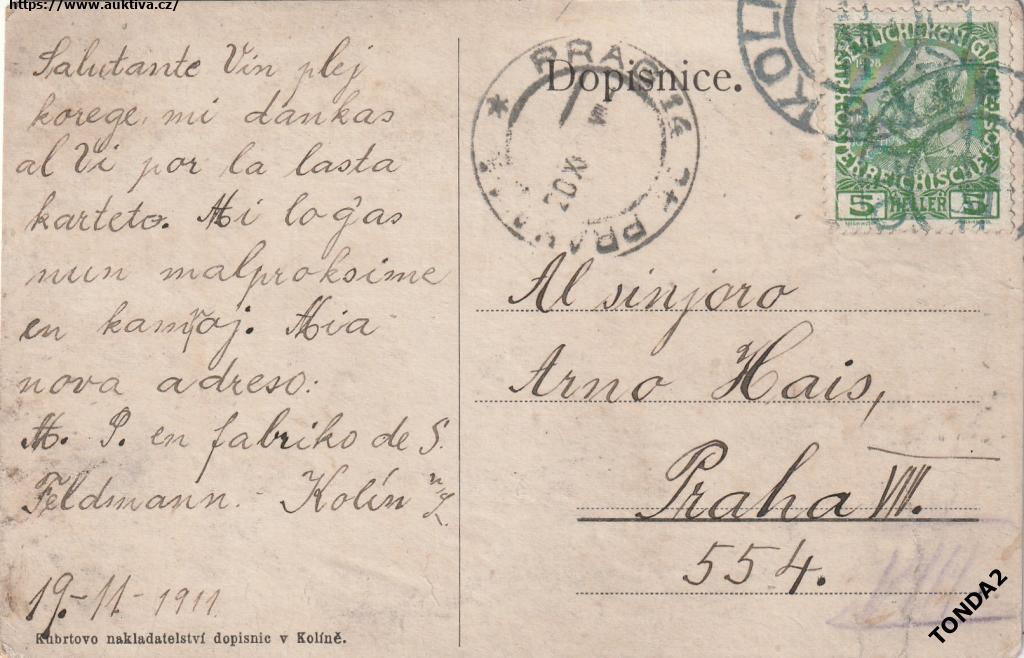 https://www.auktiva.cz/
Salutante Vin plej
korege, mi dankas
al Vi por la lasta
karteto. Mi loĝas
nun malproksime
en kamroj. Mia
nova adreso:
M. P. en fabriko de S.
Feldmann. Kolín n/L
19.-11.-1911
Kubrtovo nakladatelství dopisnic v Kolíně.
Dopisnice.
PRAG 14
PRAHA
20 XI
KOL
5 HELLER 5
Al sinjoro
Arno Hais,
Praha VII.
554.
TONDA2